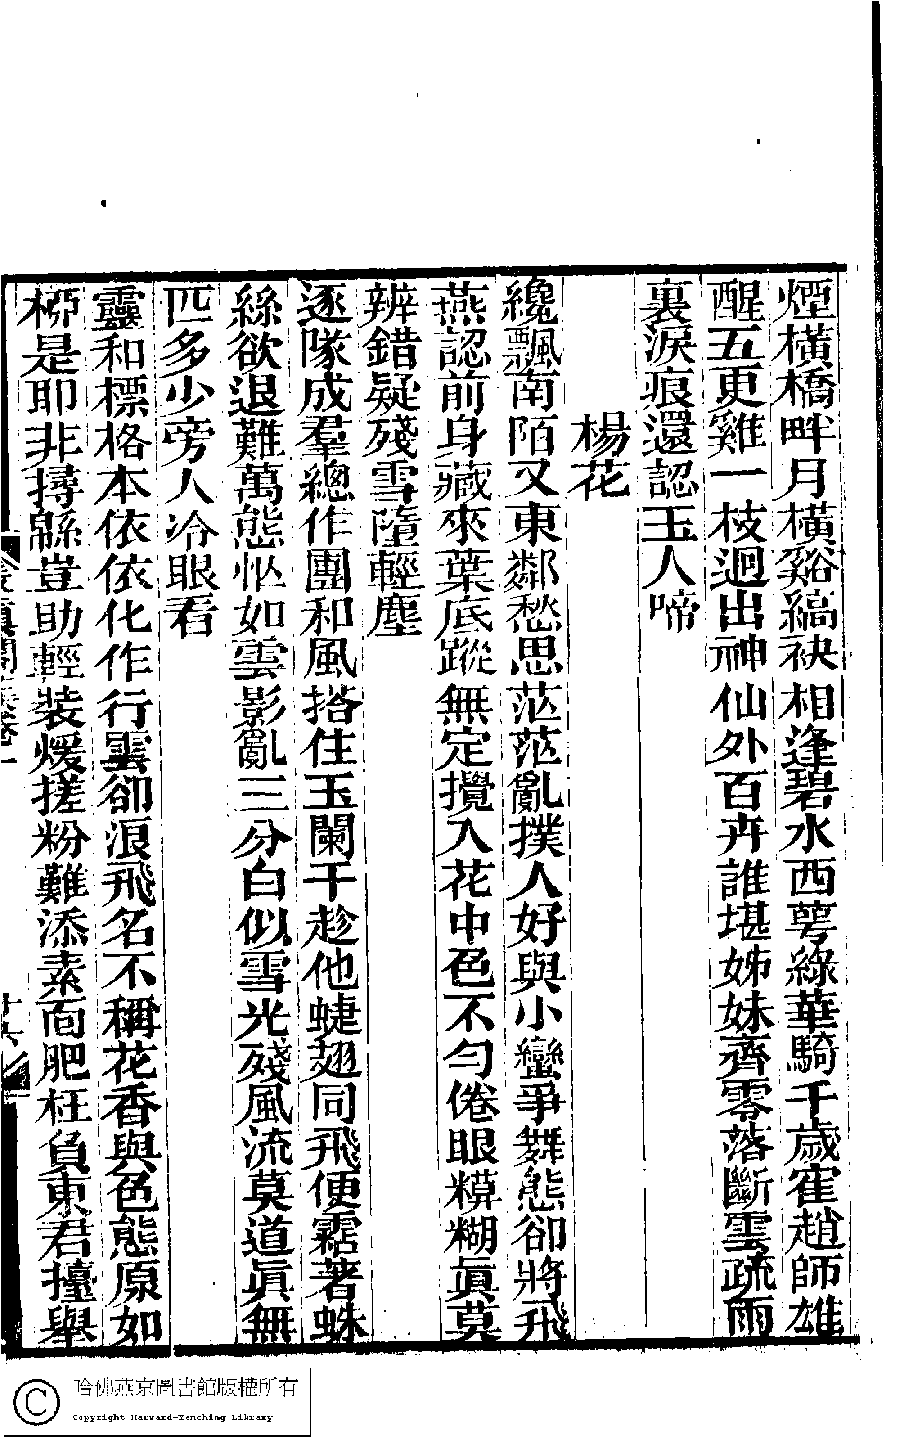 煙橫橋畔月橫谿縞袂相逢碧水西萼綠華騎千歲隺趙師雄
醒五更雞一枝迥出神仙外百卉誰堪姊妹齊零落斷雲疏雨
裏淚痕還認玉人啼
楊花
纔飄南陌又東鄰愁思茫茫亂撲人好與小蠻爭舞態卻將飛
燕認前身藏來葉底蹤無定攪入花中色不勻倦眼糢糊眞莫
辨錯疑殘雪墮輕塵
逐隊成羣總作團和風搭住玉闌干趁他蜨翅同飛便霑著蛛
絲欲退難萬態恠如雲影亂三分白似雪光殘風流莫道眞無
匹多少旁人冷眼看
靈和標格本依依化作行雲卻浪飛名不稱花香與色態原如
栁是耶非擣緜豈助輕裝煖搓粉難添素面肥枉負東君擡舉
十六
哈佛燕京圖書館版權所有
Copyright Harvard-Yenching Library